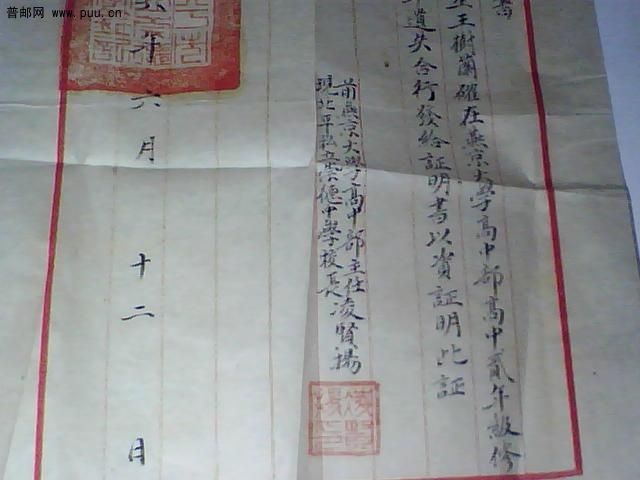 普邮网 www.puu.cn
書
王樹蘭確在燕京大學高中部高中貳年級修
遺失合行發給証明書以資証明此証
前燕京大學高中部主任
現北平私立崇德中學校長凌賢揚
年六月十二日